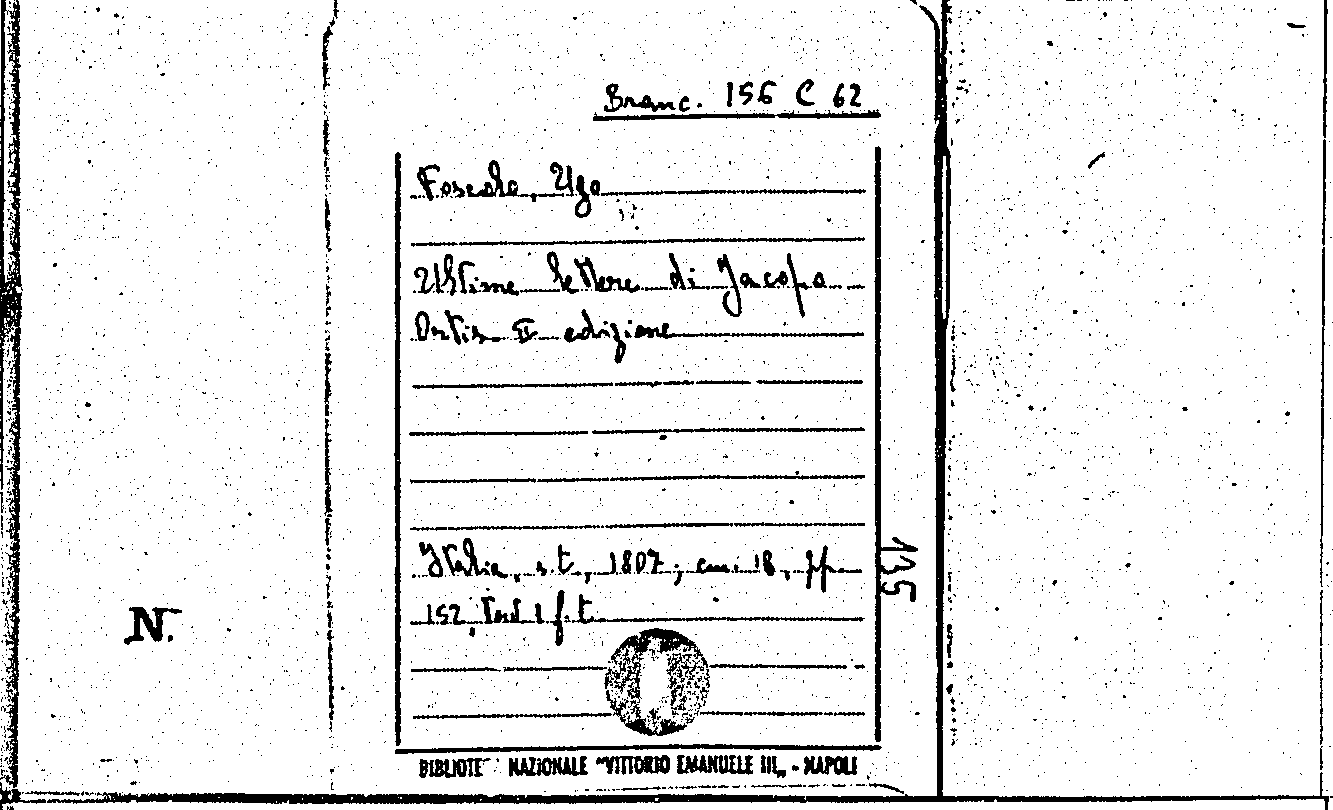 Branc. 156 C 62
Foscolo, Ugo
Ultime lettere di Jacopo
Ortis II edizione
Italia, s.t., 1807; cm. 18, pp.
152, Tav 1 f.t.
135
N.
BIBLIOTE NAZIONALE "VITTORIO EMANUELE III„ - NAPOLI